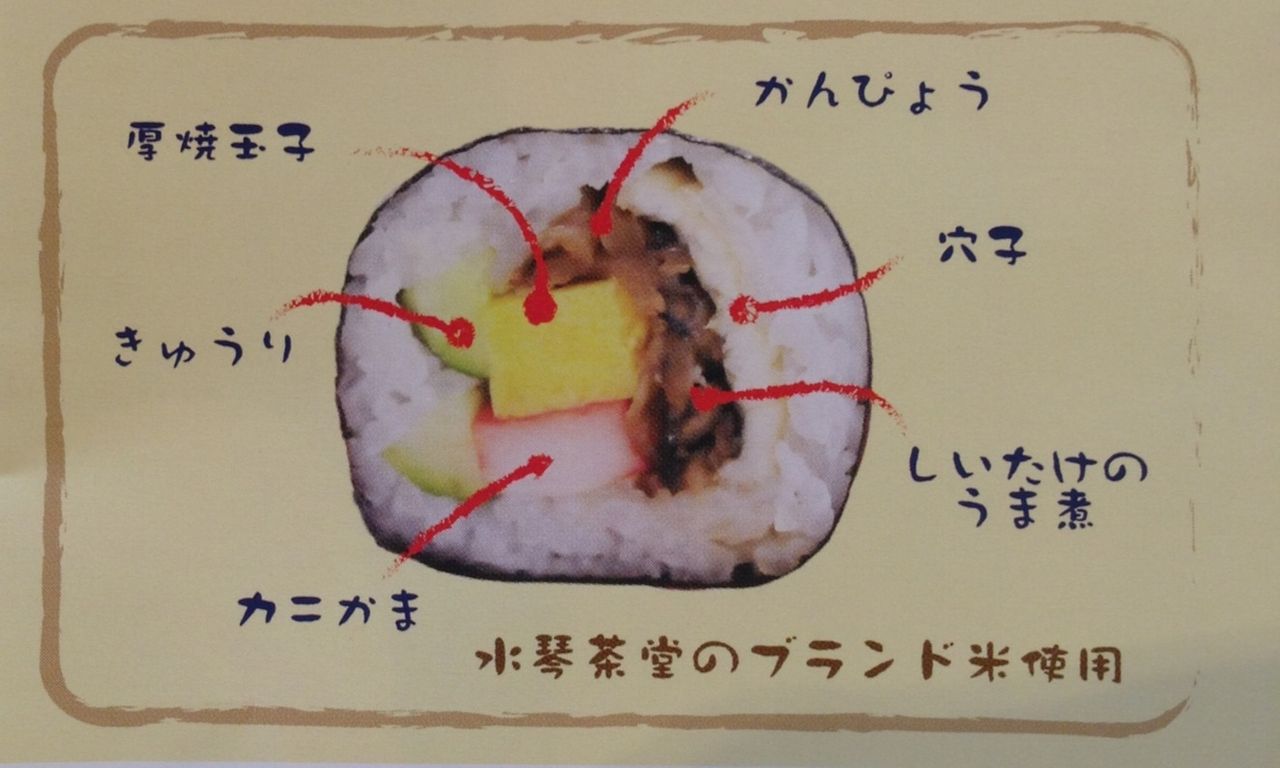 かんぴょう
厚焼玉子
穴子
きゅうり
しいたけの
うま煮
カニかま
水琴茶堂のブランド米使用